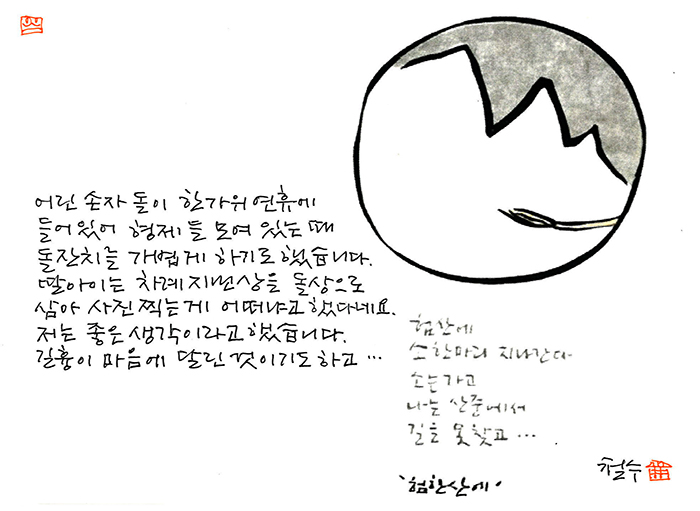 어린 손자 돌이 한가위 연휴에
들어있어 형제들 모여 있는 때
돌잔치를 가볍게 하기로 했습니다.
딸아이는 차례지낸상을 돌상으로
삼아 사진찍는게 어떠냐고 했다네요.
저는 좋은 생각이라고 했습니다.
길흉이 마음에 달린 것이기도 하고 …
험산에
소한마리 지나간다
소는 가고
나는 산중에서
길을 못찾고 ….
'험한산에'
철수